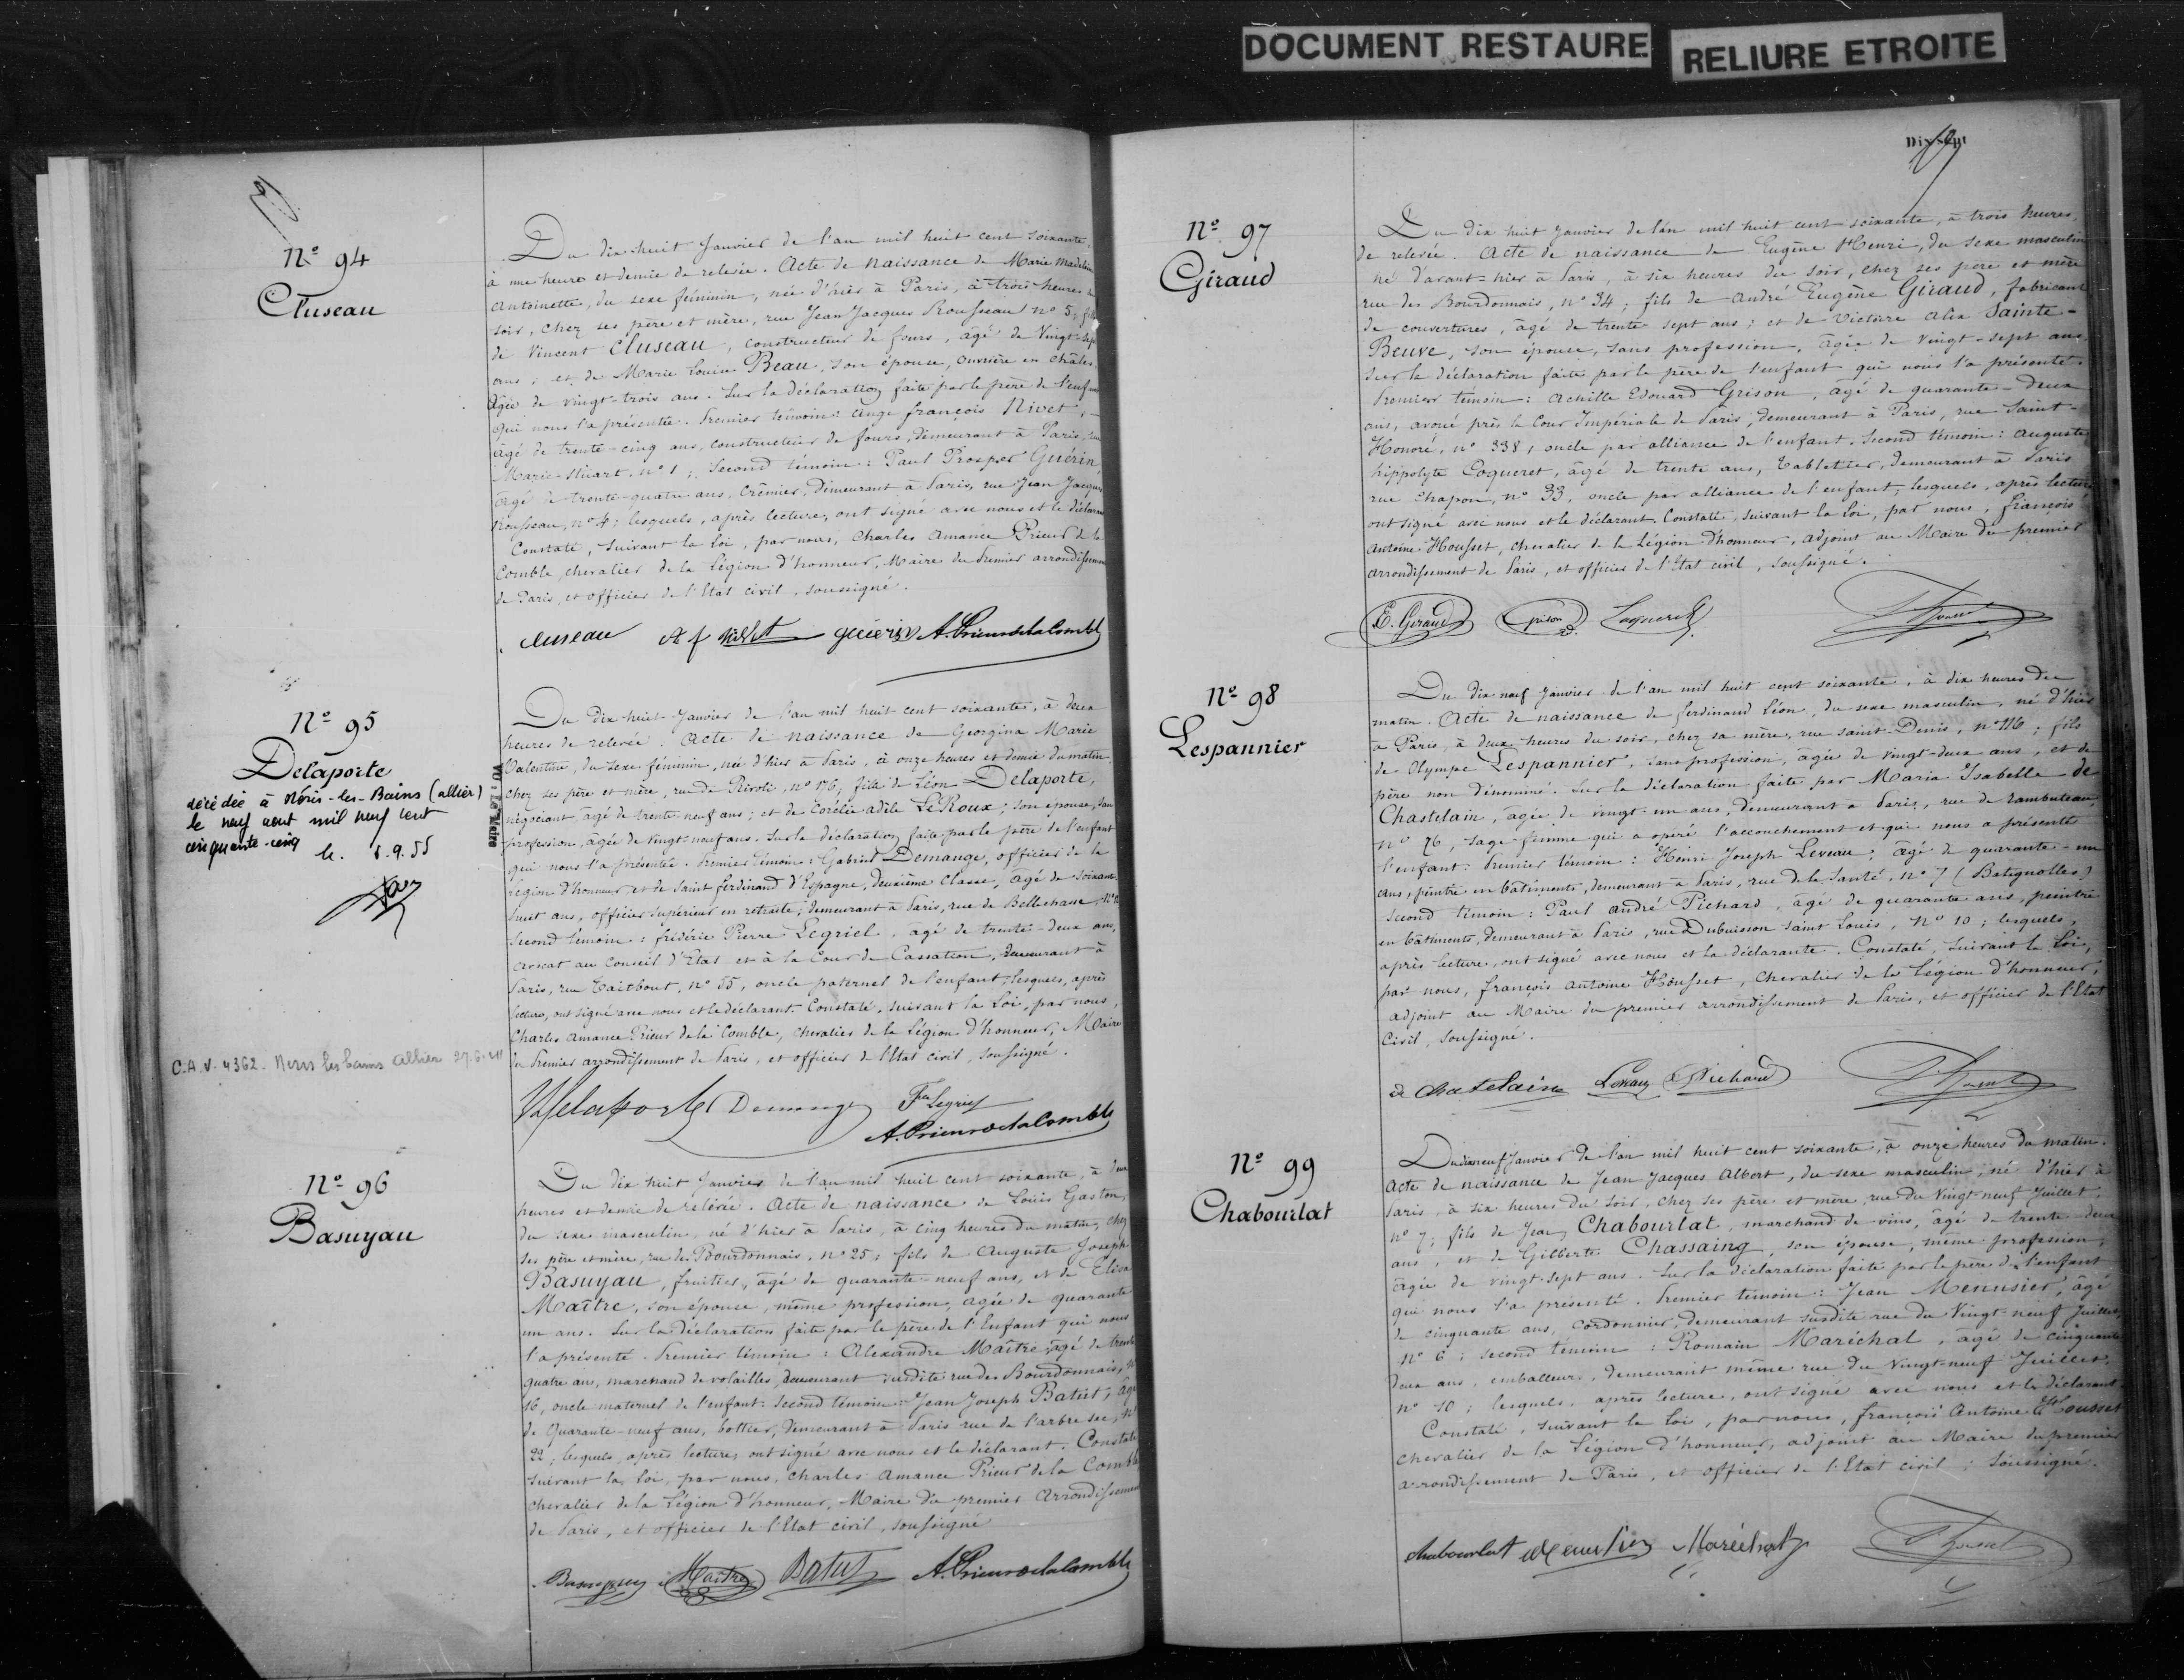 DOCUMENT RESTAURE
RELIURE ETROITE
Nº 94
Cluseau
Du dix-huit Janvier de l'an mil huit cent soixante,
à une heure et demie de relevée. Acte de naissance de Marie Madeleine
Antoinette, du sexe féminin, née d'hier à Paris, à trois heures du
soir, chez ses père et mère, rue Jean Jacques Rousseau nº 5; fille
de Vincent Cluseau, constructeur de fours, âgé de Vingt-sept
ans; et de Marie Louise Beau, son épouse, ouvrière en châles,
âgée de vingt-trois ans. Sur la déclaration faite par le père de l'enfant
qui nous l'a présentée. Premier témoin: Ange françois Nivet,
âgé de trente-cinq ans, constructeur de fours, demeurant à Paris, rue
Marie-Stuart, nº 1; Second témoin: Paul Prosper Guérin,
âgé de trente-quatre ans, Crêmier, demeurant à Paris, rue Jean Jacques
Rousseau, nº 4; lesquels, après lecture, ont signé avec nous et le déclarant
Constaté, suivant la loi, par nous, Charles Amance Prieur de la
Comble, chevalier de la Légion d'honneur, Maire du Premier arrondissement
de Paris, et officier de l'Etat civil, soussigné.
Cluseau A f Nivet guérin A. Prieur de la Comble
Nº 95
Delaporte
décédée à Néris-les-Bains (allier)
le neuf aout mil neuf cent
cinquante-cinq le 1.9.55
VU: Le Maire
C.A.V. 4362. Neris les bains allier
Du dix-huit Janvier de l'an mil huit cent soixante, à deux
heures de relevée. Acte de naissance de Georgina Marie
Valentine, du sexe féminin, née d'hier à Paris, à onze heures et demie du matin,
chez ses père et mère, rue de Rivoli, nº 176; fille de Léon Delaporte,
négociant, âgé de trente-neuf ans; et de Corélie adèle LeRoux; son épouse, sans
profession, âgée de vingt-neuf ans. Sur la déclaration faite par le père de l'enfant
qui nous l'a présentée. Premier témoin: Gabriel Demange, officier de la
Légion d'honneur et de Saint ferdinand d'Espagne, deuxième classe, âgé de soixante
huit ans, officier supérieur en retraite; demeurant à Paris, rue de Bellechasse, nº
Second témoin: frédéric Pierre Legriel, âgé de trente-deux ans,
avocat au Conseil d'Etat et à la Cour de Cassation, demeurant à
Paris, rue Taitbout, nº 55, oncle paternel de l'enfant; lesquels, après
lecture, ont signé avec nous et le déclarant. Constaté, suivant la Loi, par nous,
Charles Amance Prieur de la Comble, chevalier de la Légion d'honneur, Maire
du Premier arrondissement de Paris, et officier de l'Etat civil, soussigné.
Delaporte Demange Legriel
A. Prieur de la Comble
Nº 96
Basuyau
Du dix huit Janvier de l'an mil huit cent soixante, à deux
heures et demie de relevée. Acte de naissance de Louis Gaston,
du sexe masculin, né d'hier à Paris, à cinq heures du matin, chez
ses père et mère, rue des Bourdonnais, nº 25; fils de Auguste Joseph
Basuyau, fruitier, âgé de quarante-neuf ans, et de Elisa
Maître, son épouse, même profession, âgée de quarante
un ans. Sur la déclaration faite par le père de l'Enfant qui nous
l'a présenté. Premier témoin: Alexandre Maître, âgé de trente
quatre ans, marchand de volailles, demeurant susdite rue des Bourdonnais, nº
16, oncle maternel de l'enfant. Second témoin: Jean Joseph Batut, âgé
de Quarante-neuf ans, bottier, demeurant à Paris rue de l'arbre sec, nº
22; lesquels, après lecture, ont signé avec nous et le déclarant. Constaté
suivant la Loi, par nous, Charles Amance Prieur de la Comble
chevalier de la Légion d'honneur, Maire du premier Arrondissement
de Paris, et officier de l'Etat civil, soussigné
Basuyau Maître Batut A. Prieur de la Comble
Dix-sept
Nº 97
Giraud
Du dix huit Janvier de l'an mil huit cent soixante, à trois heures,
de relevée. Acte de naissance de Eugène Henri, du sexe masculin
né d'avant-hier à Paris, à six heures du soir, chez ses père et mère
rue des Bourdonnais, nº 34; fils de André Eugène Giraud, fabricant
de couvertures, âgé de trente sept ans; et de Victoire Alix Sainte-
Beuve, son épouse, sans profession, âgée de vingt-sept ans.
Sur la déclaration faite par le père de l'enfant qui nous l'a présenté.
Premier témoin: Achille Edouard Grison, âgé de quarante-deux
ans, avoué près la Cour Impériale de Paris, demeurant à Paris, rue Saint-
Honoré, nº 338, oncle par alliance de l'enfant. Second témoin: Auguste
hippolyte Coqueret, âgé de trente ans, Tabletier, demeurant à Paris
rue Chapon, nº 33, oncle par alliance de l'enfant; lesquels, après lecture
ont signé avec nous et le déclarant. Constaté, suivant la Loi, par nous, François
Antoine Housset, chevalier de la Légion d'honneur, adjoint au Maire du premier
arrondissement de Paris, et officier de l'Etat civil, soussigné.
E. Giraud Grison Coqueret
Nº 98
Lespannier
Du dix neuf Janvier de l'an mil huit cent soixante, à dix heures du
matin. Acte de naissance de ferdinand Léon, du sexe masculin, né d'hier
à Paris, à deux heures du soir, chez sa mère, rue saint-Denis, nº 116; fils
de Olympe Lespannier, sans profession, âgée de vingt-deux ans, et de
père non dénommé. Sur la déclaration faite par Maria Isabelle de
Chastelain, âgée de vingt-un ans, demeurant à Paris, rue de rambuteau
nº 76, sage-femme qui a opéré l'accouchement et qui nous a présenté
l'enfant. Premier témoin: Henri Joseph Leveau, âgé de quarante-un
ans, peintre en bâtiments, demeurant à Paris, rue de la Santé, nº 7 (Batignolles)
second témoin: Paul André Pichard, âgé de quarante ans, peintre
en bâtiments, demeurant à Paris, rue Dubuisson Saint Louis, nº 10; lesquels,
après lecture, ont signé avec nous et la déclarante. Constaté, suivant la Loi,
par nous, françois Antoine Housset, chevalier de la Légion d'honneur,
adjoint au Maire du premier arrondissement de Paris, et officier de l'Etat
civil, soussigné.
de Chastelain Leveau Pichard
Nº 99
Chabourlat
Du dix neuf Janvier de l'an mil huit cent soixante, à onze heures du matin.
Acte de naissance de Jean Jacques Albert, du sexe masculin, né d'hier à
Paris, à six heures du soir, chez ses père et mère, rue du Vingt-neuf Juillet,
nº 7; fils de Jean Chabourlat, marchand de vins, âgé de trente-deux
ans, et de Gilberte Chassaing, son épouse, même profession,
âgée de vingt-sept ans. Sur la déclaration faite par le père de l'enfant
qui nous l'a présenté. Premier témoin: Jean Menusier, âgé
de cinquante ans, cordonnier, demeurant susdite rue du Vingt-neuf Juillet,
nº 6; second témoin: Romain Maréchal, âgé de cinquante
deux ans, emballeur, demeurant même rue du Vingt-neuf Juillet,
nº 10; lesquels, après lecture, ont signé avec nous et le déclarant.
Constaté, suivant la Loi, par nous, françois Antoine Housset
chevalier de la Légion d'honneur, adjoint au Maire du premier
arrondissement de Paris, et officier de l'Etat civil, soussigné.
Chabourlat Menusier Maréchal